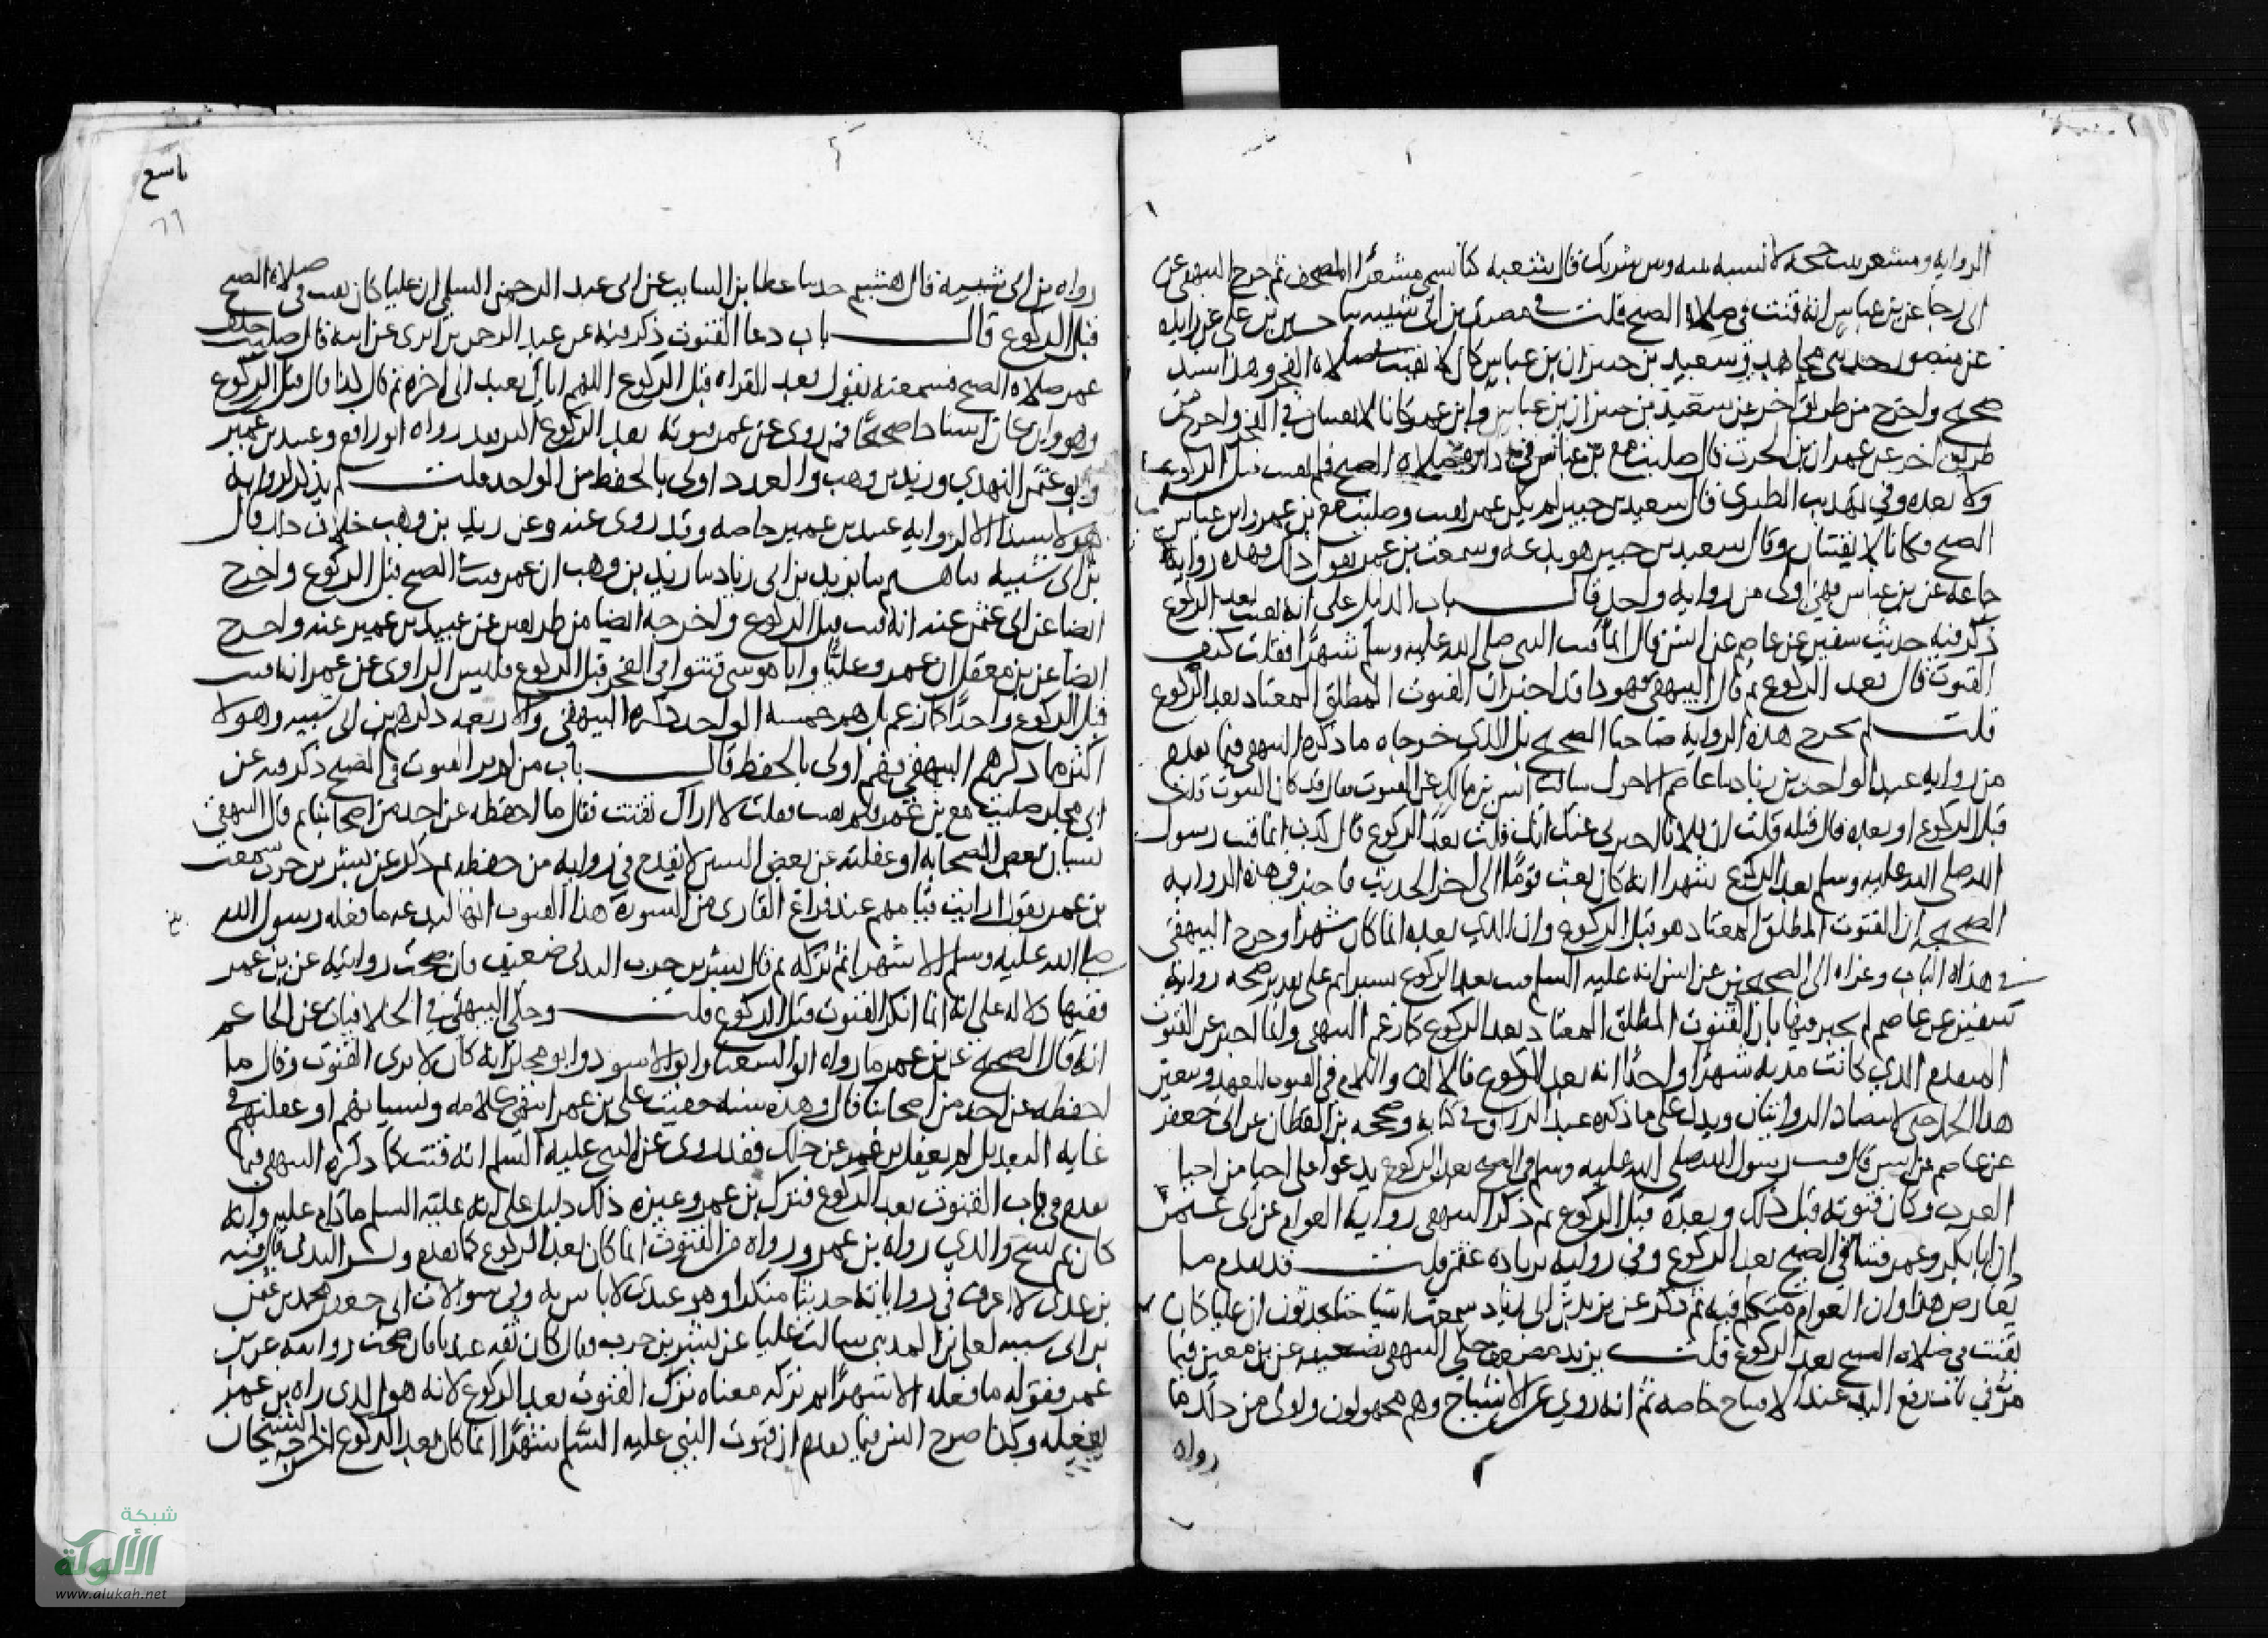 الرواية ومسعر بن حجه لا نسبه بينه وبين شريك قال شعبه كنا نسمي مسعرا المصحف ثم خرج البيهقي عن
ابي رجا عن بن عباس انه قنت في صلاة الصبح قلت في مصنف بن ابي شيبه ثنا حسين بن علي عن زايده
عن منصور حدثني مجاهد وسعيد بن جبير ان بن عباس كان لا يقنت في صلاة الفجر وهذا سند
صحيح واخرج من طريق اخر عن سعيد بن جبير ان بن عباس وابن عمر كانا لا يقنتان في الفجر واخرج من
طريق اخر عن عمران بن الحرث قال صليت مع بن عباس في داره صلاة الصبح فلم يقنت قبل الركوع
ولا بعده وفي تهذيب الطبري قال سعيد بن جبير لم يكن عمر يقنت وصليت مع بن عمر وابن عباس
الصبح فكانا لا يقنتان وقال سعيد بن جبير هو بدعه وسمعت بن عمر يقول ذلك فهذه رواية
جماعه عن بن عباس فهي اولى من رواية واحد قال باب الدليل على انه يقنت بعد الركوع
ذكر فيه حديث سفين عن عاصم عن انس قال انما قنت النبي صلى الله عليه وسلم شهرا فقلت كيف
القنوت قال بعد الركوع ثم قال البيهقي فهو ذا قد اخبر ان القنوت المطلق المعتاد بعد الركوع
قلت لم يخرج هذه الرواية صاحبا الصحيح بل الذي خرجاه ما ذكره البيهقي فيما بعد
من رواية عبد الواحد بن زياد ثنا عاصم الاحول سالت انس بن مالك عن القنوت فقال قد كان القنوت قلت
قبل الركوع او بعده قال قبله قلت ان فلانا اخبرني عنك انك قلت بعد الركوع قال كذب انما قنت رسول
الله صلى الله عليه وسلم بعد الركوع شهرا انه كان بعث قوما الى اخر الحديث فاخبر في هذه الرواية
الصحيحه ان القنوت المطلق المعتاد هو قبل الركوع وان الذي بعده انما كان شهرا وخرج البيهقي
في هذا الباب وعزاه الى الصحيحين عن انس انه عليه السلم قنت بعد الركوع يسيرا ثم على تقدير صحه رواية
سفين عن عاصم لم يخبر فيها بان القنوت المطلق المعتاد بعد الركوع كما زعم البيهقي وانما اخبر عن القنوت
المتقدم الذي كانت مدته شهرا واحدا انه بعد الركوع فالالف واللام في القنوت للعهد ويتعين
هذا الحمل حتى لا يتضاد الروايتان ويدل على ما ذكره عبد الرزاق في كتابه وصححه بن القطان عن ابي جعفر
عن عاصم عن انس قال قنت رسول الله صلى الله عليه وسلم في الصبح بعد الركوع يدعو على احيا من احيا
العرب وكان قنوته قبل ذلك وبعده قبل الركوع ثم ذكر البيهقي رواية العوام عن ابي عثمن
ان ابا بكر وعمر قنتا في الصبح بعد الركوع وفي رواية بزيادة عثمن قلت قد تقدم ما
يعارض هذا وان العوام متكلم فيه ثم ذكر عن يزيد بن ابي زياد سمعت اشياخنا يحدثون ان عليا كان
يقنت في صلاة الصبح بعد الركوع قلت يزيد مضعف حكى البيهقي تضعيفه عن بن معين فيما
مر في باب رفع اليد عند الافتتاح خاصه ثم انه روي عن الاشياخ وهم مجهولون واولى من ذلك ما
رواه
تاسع
٦٦
رواه بن ابي شيبه قال هشيم حدثنا عطا بن السايب عن ابي عبد الرحمن السلمي ان عليا كان يقنت في صلاة الصبح
قبل الركوع قال باب دعا القنوت ذكر فيه عن عبد الرحمن بن ابزى عن ابيه قال صليت خلف
عمر صلاة الصبح فسمعته يقول بعد القراه قبل الركوع اللهم اياك نعبد الى اخره ثم قال كذا قال قبل الركوع
وهو وان كان اسنادا صحيحا فمن روى عن عمر قنوته بعد الركوع اكثر فقد رواه ابو رافع وعبيد بن عمير
وابو عثمن النهدي وزيد بن وهب والعدد اولى بالحفظ من الواحد قلت لم يذكر لرواية
هولا سندا الا لرواية عبيد بن عمير خاصه وقد روى عنه وعن زيد بن وهب خلاف ذلك قال
بن ابي شيبه ثنا هشيم ثنا يزيد بن ابي زياد ثنا زيد بن وهب ان عمر قنت في الصبح قبل الركوع واخرج
ايضا عن ابي عثمن عنه انه قنت قبل الركوع واخرجه ايضا من طريقين عن عبيد بن عمير عنه واخرج
ايضا عن بن معقل ان عمر وعليا وابا موسى قنتوا في الفجر قبل الركوع فليس الراوي عن عمر انه قنت
قبل الركوع واحدا كما زعم بل هم خمسه الواحد ذكره البيهقي والاربعه ذكرهم بن ابي شيبه وهولا
اكثر مما ذكرهم البيهقي فهم اولى بالحفظ قال باب من لم ير القنوت في الصبح ذكر فيه عن
ابي مجلز صليت مع بن عمر فلم يقنت فقلت لا اراك تقنت فقال ما احفظه عن احد من اصحابنا ثم قال البيهقي
نسيان بعض الصحابه او غفلته عن بعض السنن لا يقدح في رواية من حفظه ثم ذكر عن بشر بن حرب سمعت
بن عمر يقول ارايت قيامهم عند فراغ القاري من السورة هذا القنوت انها لبدعه ما فعله رسول الله
صلى الله عليه وسلم الا شهرا ثم تركه ثم قال بشر بن حرب الندبي ضعيف فان صحت روايته عن بن عمر
ففيها دلاله على انه انما انكر القنوت قبل الركوع قلت وحكى البيهقي في الخلافيات عن الحاكم
انه قال الصحيح عن بن عمر ما رواه ابو الشعثا وابو الاسود وابو مجلز انه كان لا يرى القنوت وقال ما
احفظه عن احد من اصحابنا قال وهذه سنه خفيت على بن عمر انتهى كلامه ونسيانهم او غفلتهم في
غاية البعد بل لم يغفل بن عمر عن ذلك فقد روى عن النبي عليه السلم انه قنت كما ذكره البيهقي فيما
تقدم في باب القنوت بعد الركوع فترك بن عمر وغيره ذلك دليل على انه عليه السلم ما دام عليه وانه
كان ثم نسخ والذي رواه بن عمر ورواه من القنوت انما كان بعد الركوع كما تقدم وبشر الندبي قال فيه
بن عدي لا اعرف في رواياته حديثا منكرا وهو عندي لا باس به وفي سوالات ابي جعفر محمد بن عثمن
بن ابي شيبه لعلي بن المديني سالت عليا عن بشر بن حرب فقال كان ثقه عندنا فان صحت روايته عن بن
عمر فقوله ما فعله الا شهرا ثم تركه معناه ترك القنوت بعد الركوع لانه هو الذي راه بن عمر
يفعله وكذا صرح انس فيما تقدم ان قنوت النبي عليه السلم شهرا انما كان بعد الركوع اخرجه الشيخان
شبكة
الألوكة
www.alukah.net